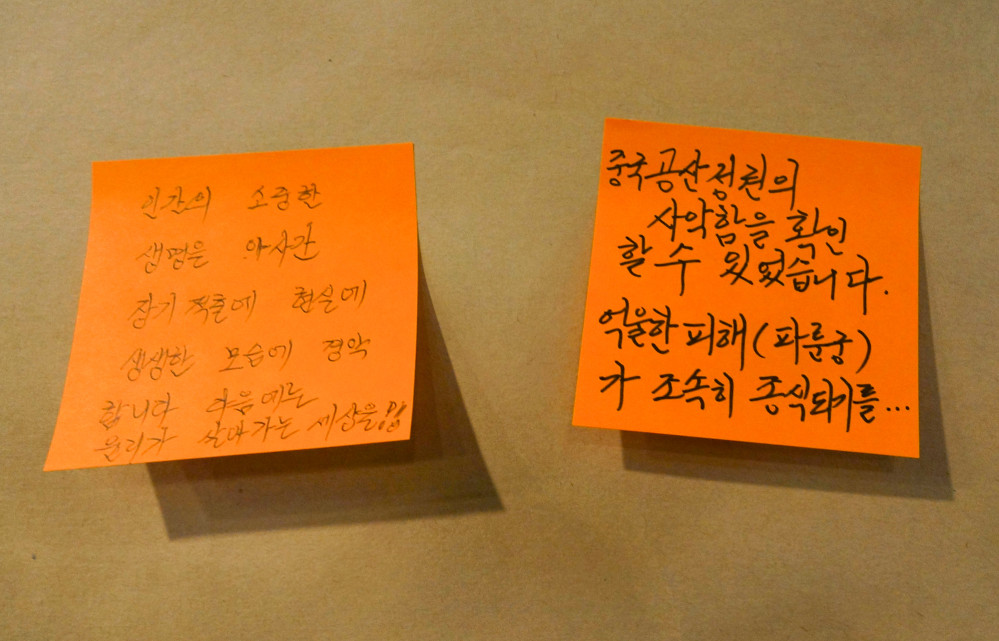 인간의 소중한
생명을 앗사간
장기적출에 현실에
생생한 모습에 경악
합니다 다음에는
우리가 살아가는 세상을
중국공산정권의
사악함을 확인
할 수 있었습니다.
억울한 피해(파룬궁)
가 조속히 종식되기를...